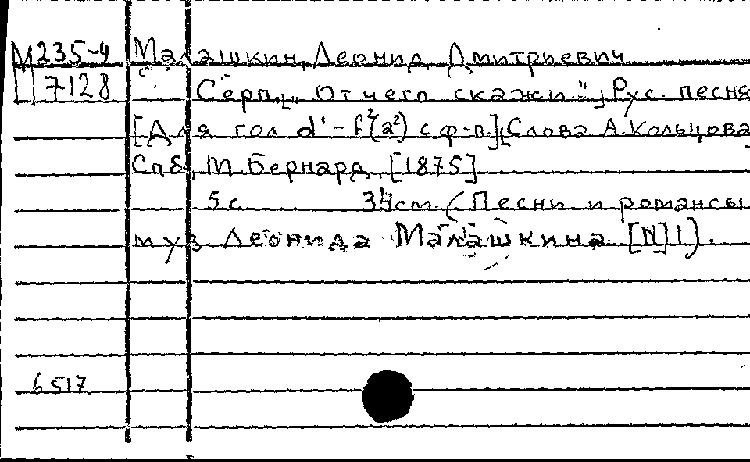 М235-4 Малашкин, Леонид Дмитриевич
7128 Серп. „Отчего скажи“, Рус. песня
[Для гол d¹-f²(a²) с ф-п.] Слова А. Кольцова
Спб, М. Бернард, [1875]
5 с. 34 см. (Песни и романсы
муз Леонида Малашкина [N] 1).
6517